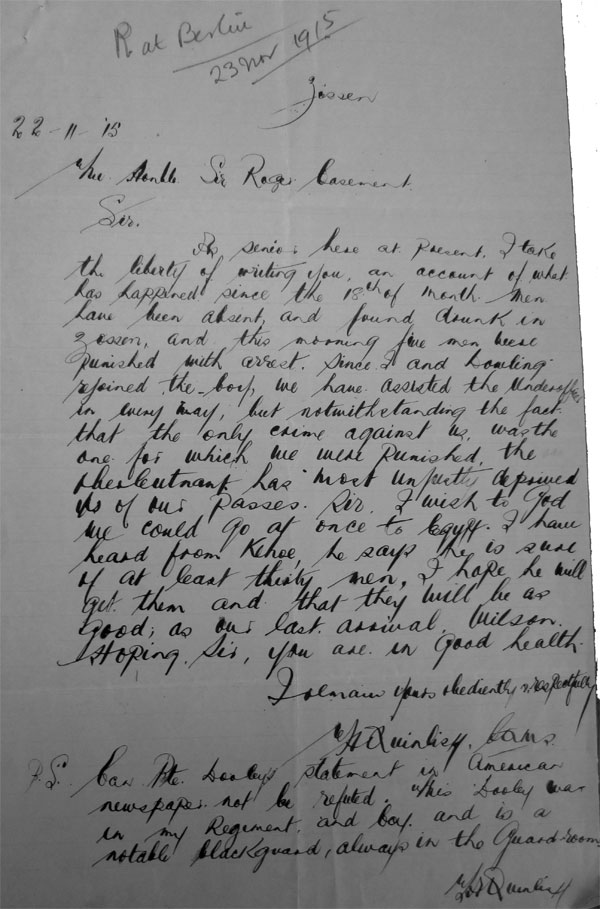 R at Berlin
23 Nov 1915
Zossen
22-11-'15
The Honble. Sir Roger Casement.
Sir.
As senior here at present, I take
the liberty of writing you, an account of what
has happened since the 18th of month. Men
have been absent, and found drunk in
Zossen, and this morning five men were
punished with arrest. Since I and Dowling
rejoined the boys, we have assisted the
in every way, but notwithstanding the fact
that the only crime against us, was the
one for which we were punished, the
oberleutnant has most unjustly deprived
us of our passes. Sir, I wish to God
we could go at once to Egypt. I have
heard from Kehoe, he says he is sure
of at least thirty men, I hope he will
get them and that they will be as
good, as our last arrival, Wilson.
Hoping, Sir, you are in good health.
I remain yours obediently & respectfully
Quinlisk,
P.S. Can Pte. Dooley's statement in American
newspaper not be refuted. This Dooley was
in my Regiment and Coy. and is a
notable blackguard, always in the Guard-room
Quinlisk